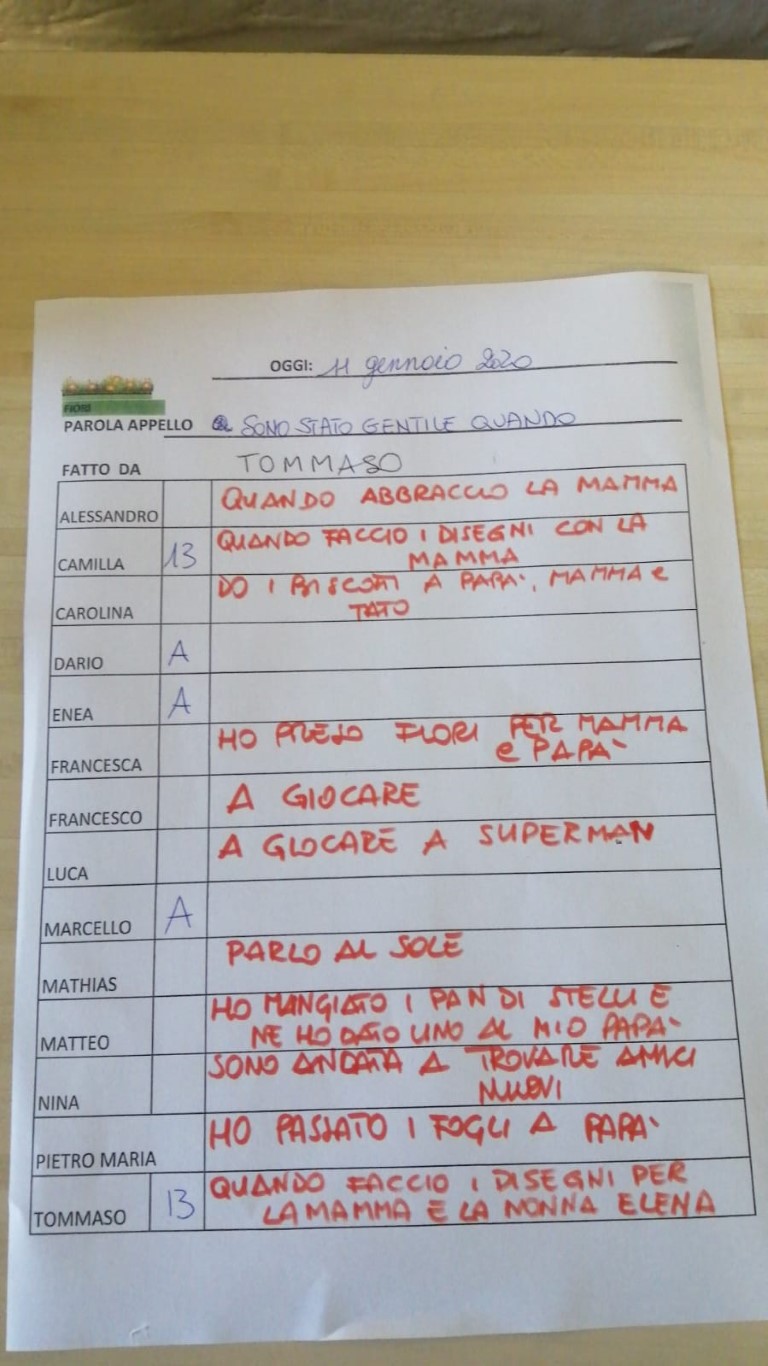 OGGI: 11 gennaio 2020
FIORI
PAROLA APPELLO SONO STATO GENTILE QUANDO
FATTO DA TOMMASO
ALESSANDRO QUANDO ABBRACCIO LA MAMMA
CAMILLA 13 QUANDO FACCIO I DISEGNI CON LA
MAMMA
CAROLINA DO I BISCOTTI A PAPA', MAMMA e
TATO
DARIO A
ENEA A
FRANCESCA HO PRESO FIORI PER MAMMA
e PAPA'
FRANCESCO A GIOCARE
LUCA A GIOCARE A SUPERMAN
MARCELLO A
MATHIAS PARLO AL SOLE
MATTEO HO MANGIATO I PAN DI STELLE E
NE HO DATO UNO AL MIO PAPA'
NINA SONO ANDATA A TROVARE AMICI
NUOVI
PIETRO MARIA HO PASSATO I FOGLI A PAPA'
TOMMASO 13 QUANDO FACCIO I DISEGNI PER
LA MAMMA E LA NONNA ELENA